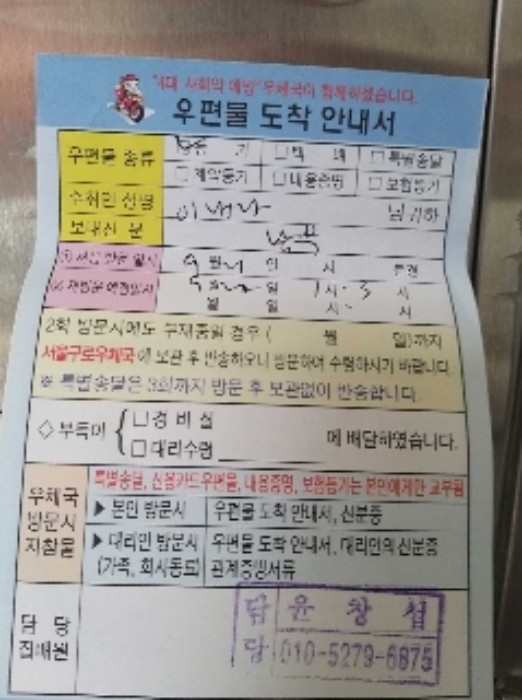 "4대 사회악 예방" 우체국이 함께하겠습니다.
우편물 도착 안내서
우편물 종류 등기 □ 택배 □ 특별송달
□ 계약등기 □ 내용증명 □ 보험등기
수취인 성명 님 귀하
보내신 분
9 월 일 시 분경
② 재방문 예정일시 월 일 1시 - 3 시
월 일 시 시
2회 방문시에도 부재중일 경우 ( 월 일)까지
서울구로우체국에 보관 후 반송하오니 방문하여 수령하시기 바랍니다.
※ 특별송달은 3회까지 방문 후 보관없이 반송합니다.
◇ 부득이 { □ 경비실
□ 대리수령 에 배달하였습니다.
우체국 방문시 지참물
특별송달, 신용카드우편물, 내용증명, 보험등기는 본인에게만 교부됨
▶ 본인 방문시 우편물 도착 안내서, 신분증
▶ 대리인 방문시 우편물 도착 안내서, 대리인의 신분증
(가족, 회사동료) 관계증빙서류
담당 집배원
담당 윤창섭
010-5279-6875